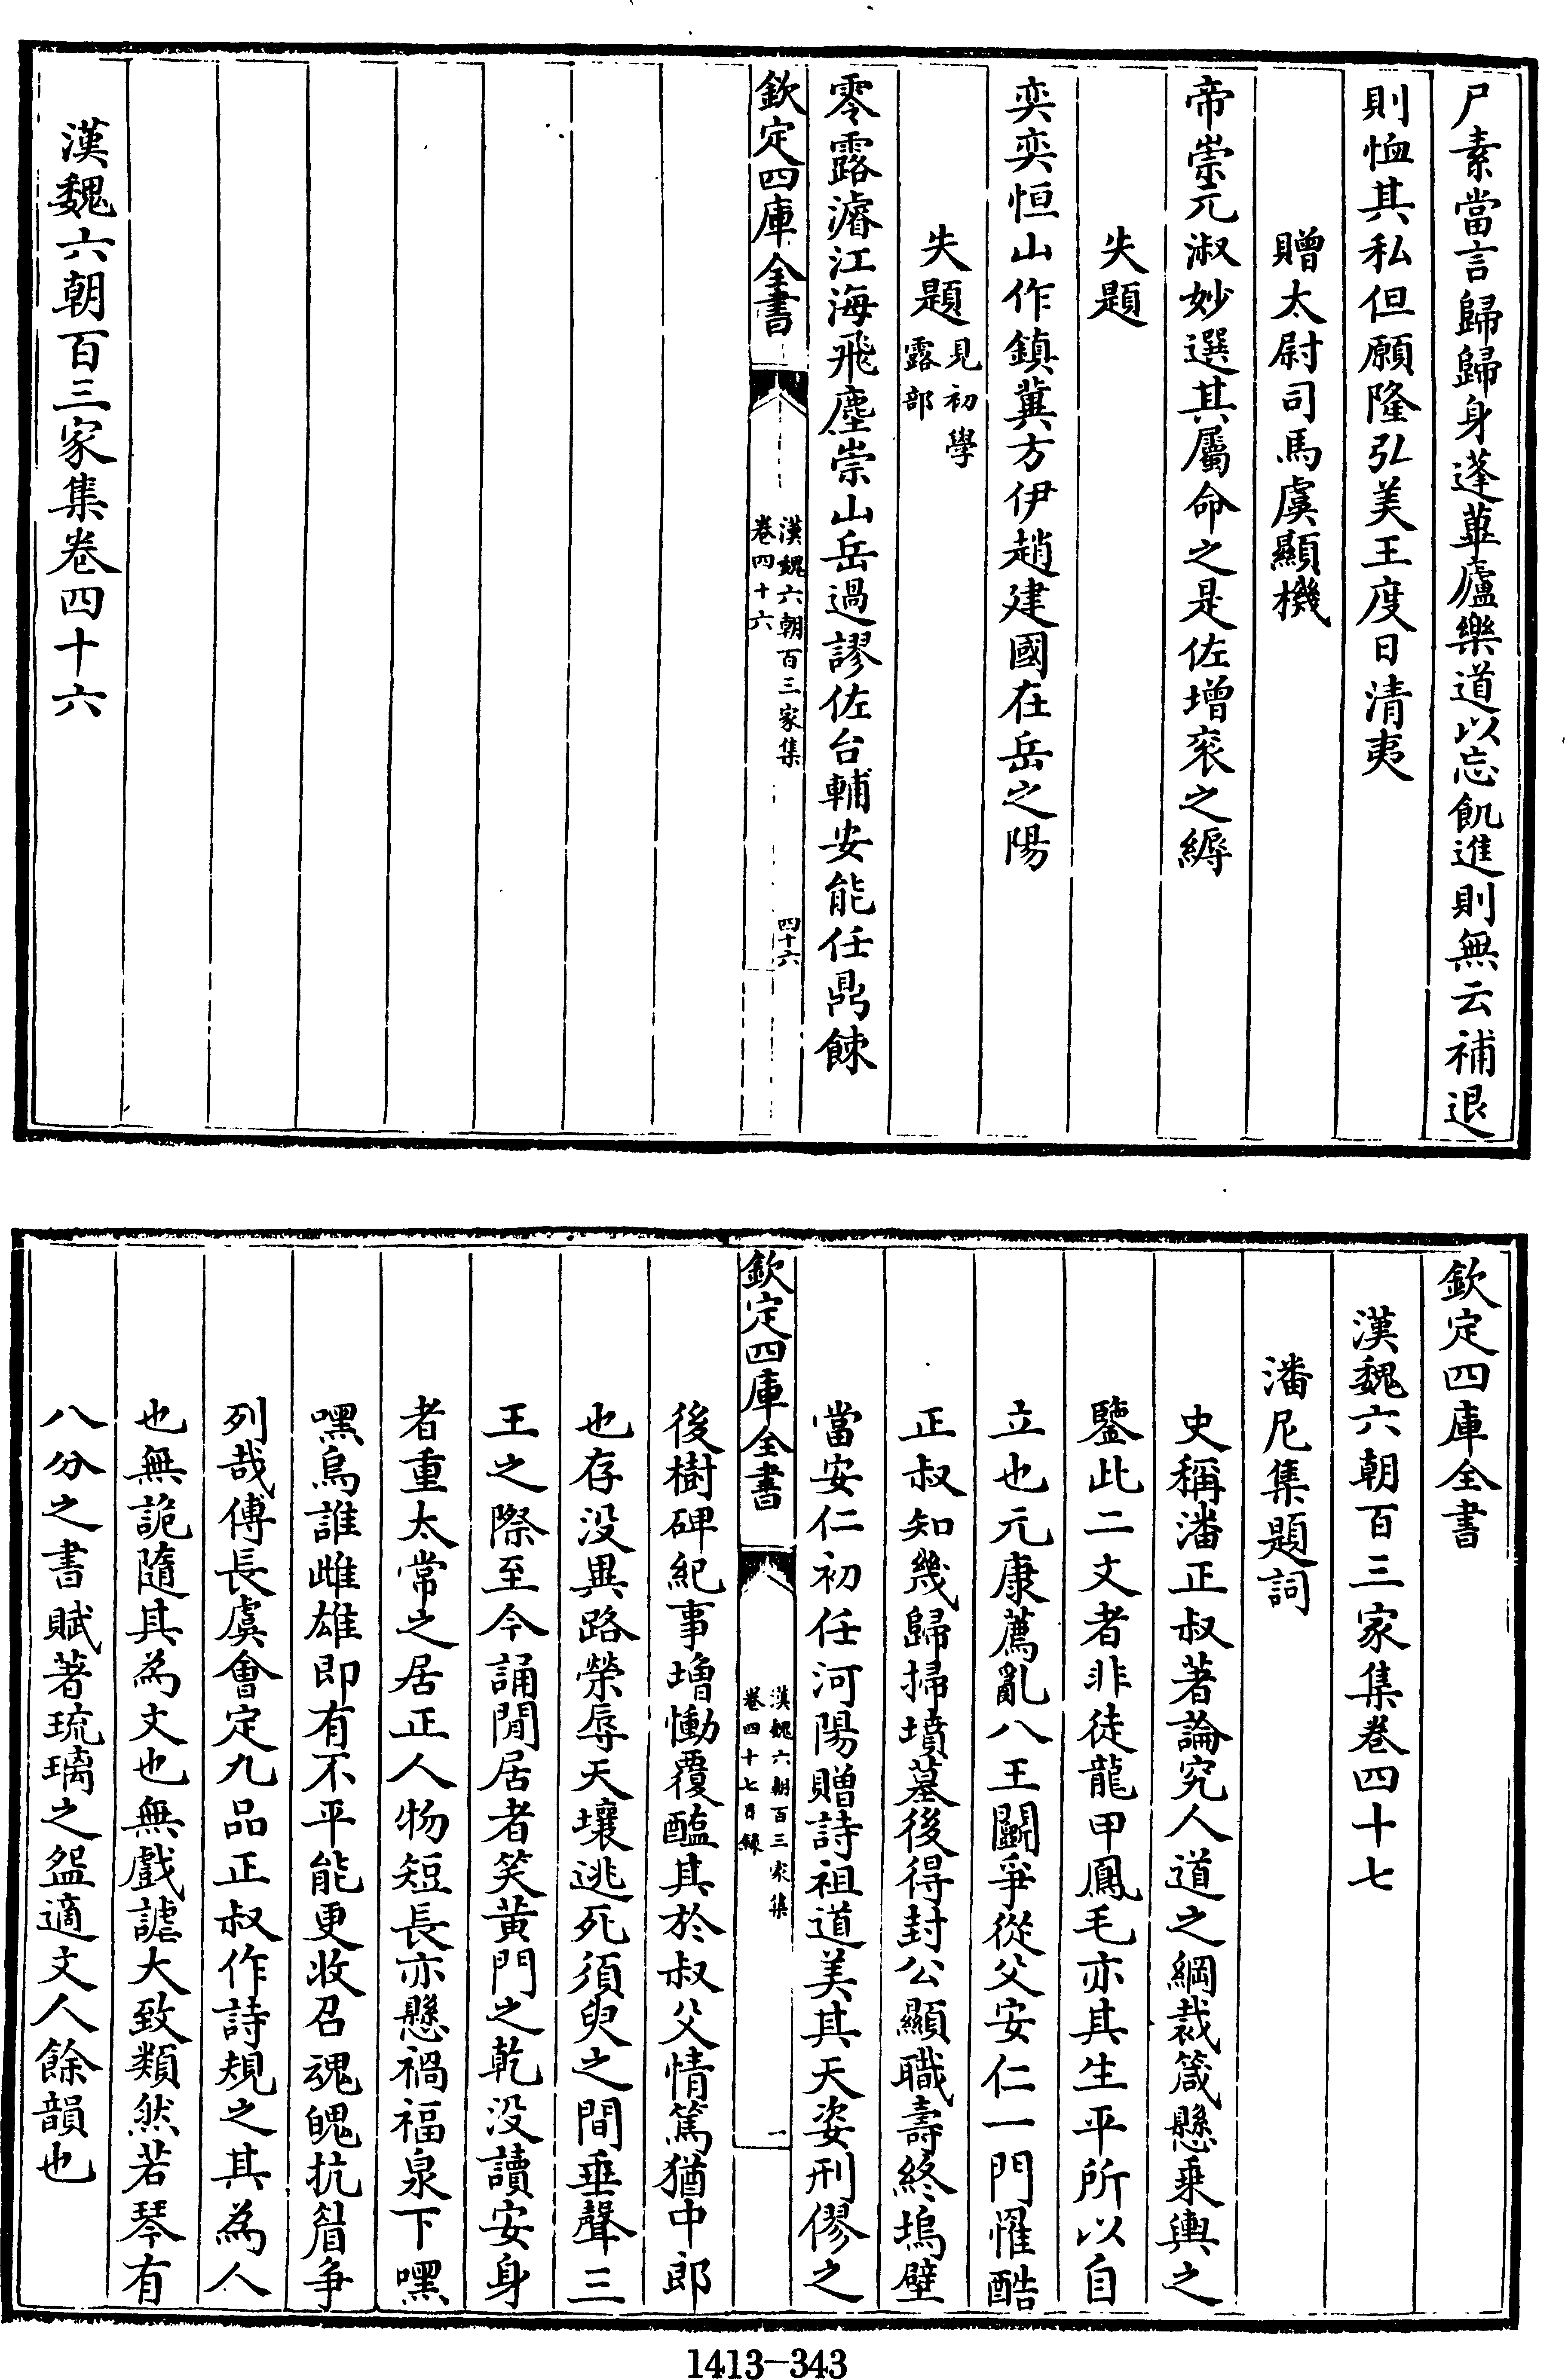 尸素當言歸歸身蓬蓽廬樂道以忘飢進則無云補退
則恤其私但願隆弘美王度日清夷
贈太尉司馬虞顯機
帝崇元淑妙選其屬命之是佐增衮之縟
失題
奕奕恒山作鎮冀方伊趙建國在岳之陽
失題見初學
露部
零露濬江海飛塵崇山岳過謬佐台輔安能任鼎餗
欽定四庫全書
漢魏六朝百三家集
卷四十六
四十六
漢魏六朝百三家集卷四十六
欽定四庫全書
漢魏六朝百三家集卷四十七
潘尼集題詞
史稱潘正叔著論究人道之綱裁箴懸乘輿之
鑒此二文者非徒龍甲鳳毛亦其生平所以自
立也元康薦亂八王鬭爭從父安仁一門罹酷
正叔知幾歸掃墳墓後得封公顯職壽終塢壁
當安仁初任河陽贈詩祖道美其天姿刑僇之
欽定四庫全書
漢魏六朝百三家集
卷四十七目錄
一
後樹碑紀事增慟覆醢其於叔父情篤猶中郎
也存没異路榮辱天壤逃死須臾之間垂聲三
王之際至今誦閒居者笑黄門之乾没讀安身
者重太常之居正人物短長亦懸禍福泉下嘿
嘿烏誰雌雄即有不平能更收召魂魄抗眉爭
列哉傅長虞會定九品正叔作詩規之其為人
也無詭隨其為文也無戲謔大致類然若琴有
八分之書賦著琉璃之盌適文人餘韻也
1413-343